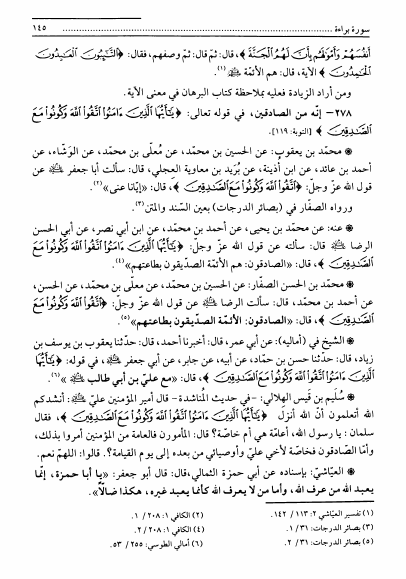 سورة براءة
١٤٥
أَنفُسَهُمْ وَأَمْوَٰلَهُم بِأَنَّ لَهُمُ ٱلْجَنَّةَ﴾، قال: ثمّ قال: ثمّ وصفهم، فقال: ﴿ٱلتَّٰٓئِبُونَ ٱلْعَٰبِدُونَ
ٱلْحَٰمِدُونَ﴾ الآية، قال: هم الأئمّة ﷺ(١).
ومن أراد الزيادة فعليه بملاحظة كتاب البرهان في معنى الآية.
٢٧٨- إنّه من الصادقين، في قوله تعالى: ﴿يَٰٓأَيُّهَا ٱلَّذِينَ ءَامَنُوا۟ ٱتَّقُوا۟ ٱللَّهَ وَكُونُوا۟ مَعَ
ٱلصَّٰدِقِينَ﴾ [التوبة: ١١٩].
* محمّد بن يعقوب: عن الحسين بن محمّد، عن مُعلّى بن محمّد، عن الوَشّاء، عن
أحمد بن عائد، عن ابن أذينة، عن بُرَيد بن معاوية العجلي، قال: سألت أبا جعفر ﷺ عن
قول الله عزّ وجلّ: ﴿ٱتَّقُوا۟ ٱللَّهَ وَكُونُوا۟ مَعَ ٱلصَّٰدِقِينَ﴾، قال: «إيّانا عنى»(٢).
ورواه الصفّار في (بصائر الدرجات) بعين السّند والمتن(٣).
* عنه: عن محمّد بن يحيى، عن أحمد بن محمّد، عن ابن أبي نصر، عن أبي الحسن
الرضا ﷺ قال: سألته عن قول الله عزّ وجلّ: ﴿يَٰٓأَيُّهَا ٱلَّذِينَ ءَامَنُوا۟ ٱتَّقُوا۟ ٱللَّهَ وَكُونُوا۟ مَعَ
ٱلصَّٰدِقِينَ﴾، قال: «الصادقون: هم الأئمّة الصدّيقون بطاعتهم»(٤).
* محمّد بن الحسن الصفّار: عن الحسين بن محمّد، عن معلّى بن محمّد، عن الحسن،
عن أحمد بن محمّد، قال: سألت الرضا ﷺ عن قول الله عزّ وجلّ: ﴿ٱتَّقُوا۟ ٱللَّهَ وَكُونُوا۟ مَعَ
ٱلصَّٰدِقِينَ﴾، قال: «الصادقون: الأئمّة الصدّيقون بطاعتهم»(٥).
* الشيخ في (أماليه): عن أبي عمر، قال: أخبرنا أحمد، قال: حدّثنا يعقوب بن يوسف بن
زياد، قال: حدّثنا حسن بن حمّاد، عن أبيه، عن جابر، عن أبي جعفر ﷺ، في قوله: ﴿يَٰٓأَيُّهَا
ٱلَّذِينَ ءَامَنُوا۟ ٱتَّقُوا۟ ٱللَّهَ وَكُونُوا۟ مَعَ ٱلصَّٰدِقِينَ﴾، قال: «مع عليّ بن أبي طالب ﷺ»(٦).
* سُليم بن قيس الهلالي: - في حديث المُناشدة - قال أمير المؤمنين عليّ ﷺ: أنشدكم
الله أتعلمون أنّ الله أنزل ﴿يَٰٓأَيُّهَا ٱلَّذِينَ ءَامَنُوا۟ ٱتَّقُوا۟ ٱللَّهَ وَكُونُوا۟ مَعَ ٱلصَّٰدِقِينَ﴾، فقال
سلمان: يا رسول الله، أعامّة هي أم خاصّة؟ قال: المأمورن فالعامة من المؤمنين أُمروا بذلك،
وأمّا الصّادقون فخاصّة لأخي عليّ وأوصيائي من بعده إلى يوم القيامة؟. قالوا: اللهمّ نعم.
* العيّاشي: بإسناده عن أبي حمزة الثمالي، قال: قال أبو جعفر: «يا أبا حمزة، إنّما
يعبد الله من عرف الله، وأما من لا يعرف الله كأنما يعبد غيره، هكذا ضالاً».
(١) تفسير العيّاشي ٢: ١١٣ / ١٤٢.
(٢) الكافي ١: ٢٠٨ / ١.
(٣) بصائر الدرجات: ٣١ / ١.
(٤) الكافي ١: ٢٠٨ / ٢.
(٥) بصائر الدرجات: ٣١ / ٢.
(٦) أمالي الطوسي: ٢٥٥ / ٥٣.